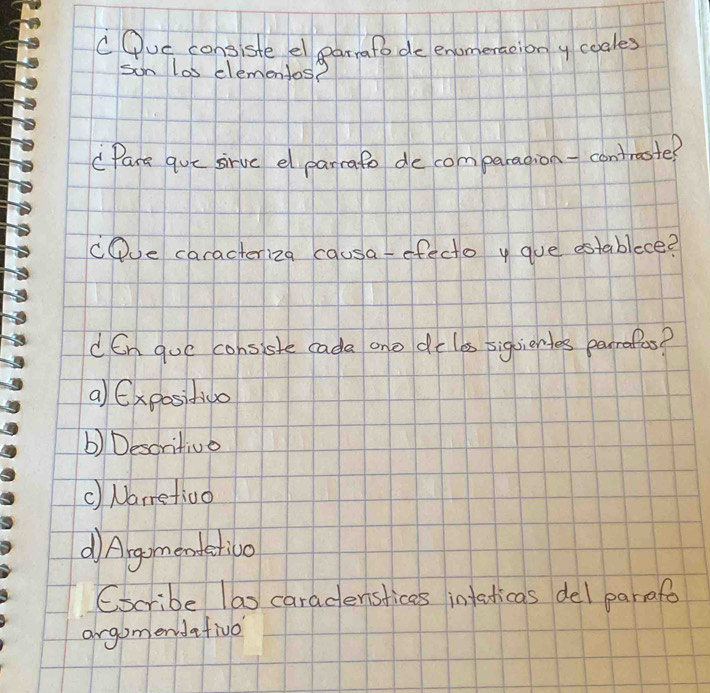 ¿Que consiste el parrafo de enumeracion y cuales
son los elementos?
¿Para que sirve el parrafo de comparacion - contraste?
¿Que caracteriza causa - efecto y que establece?
¿En que consiste cada uno de los siguientes parrafos?
a) Expositivo
b) Descritivo
c) Narretivo
d) Argumentativo
Escribe las caracteristicas intaticas del parrafo
argumentativo